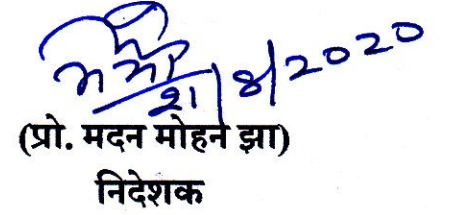 21/8/2020
(प्रो. मदन मोहन झा)
निदेशक